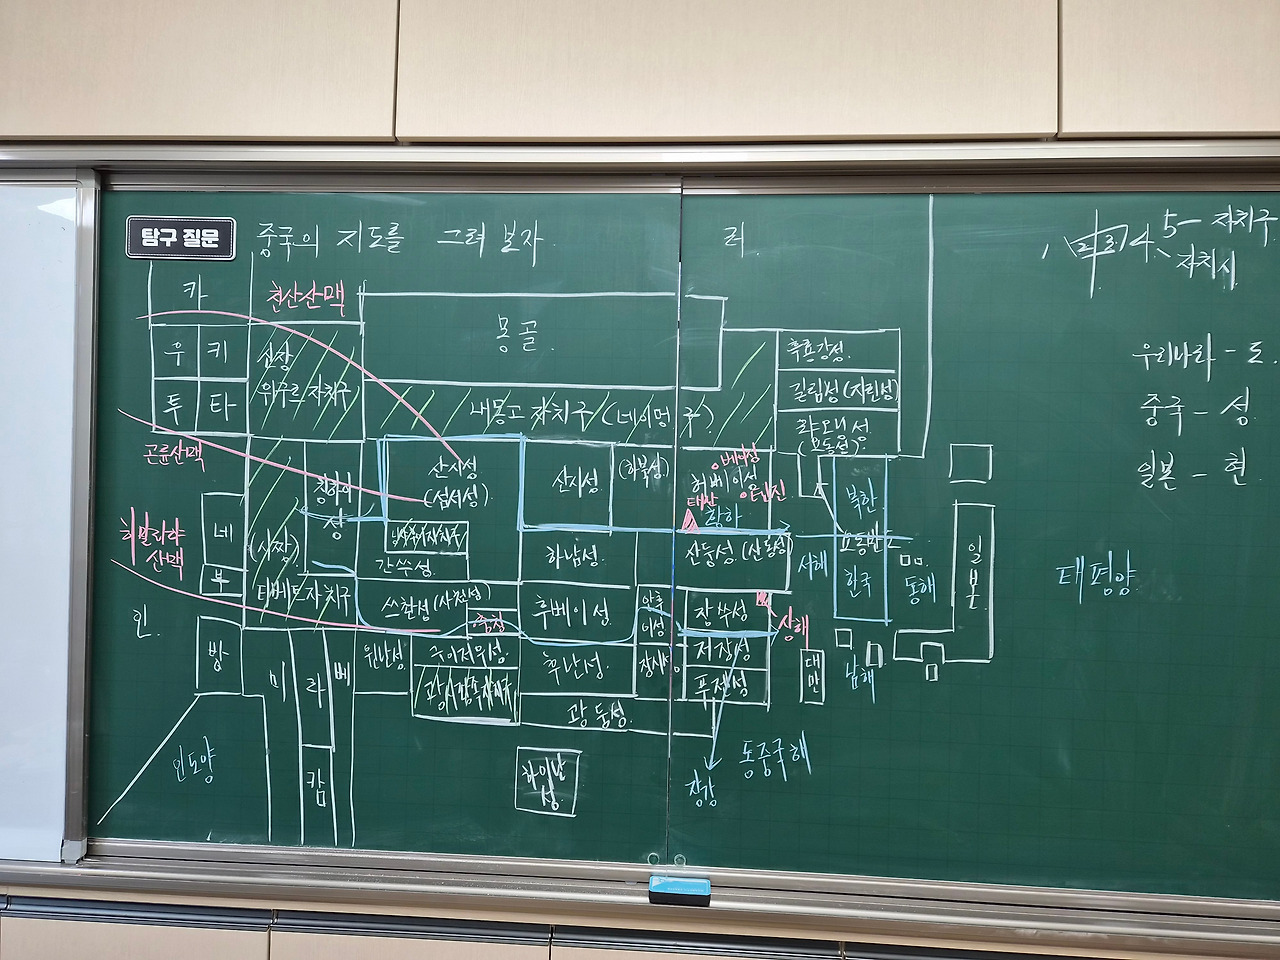 탐구 질문
중국의 지도를 그려 보자
러
5- 자치구
1, 2 3 4
자치시
카
천산산맥
몽골
우
키
신장
위구르 자치구
투
타
내몽고 자치구 (네이멍구)
흑룡강성
길림성 (지린성)
우리나라 - 도
중국 - 성
일본 - 현
곤륜산맥
산시성
(섬서성)
산시성
(허북성)
베이징
허베이성
텐진
태산
황하
북한
네
히말라야
산맥
부
(시짱)
티베트 자치구
간쑤성
하남성
산둥성 (산동성)
서해
한국
동해
일본
태평양
쓰촨성 (사천성)
충칭
후베이성
안후이성
장쑤성
상해
인
방
미
라
베
윈난성
구이저우성
후난성
장시성
저장성
푸젠성
대만
남해
광시장족자치구
광둥성
인도양
캄
하이난성
장강
동중국해